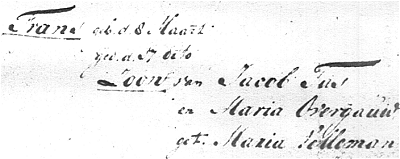 Frans geb. d. 8 Maart
ged. d. 17 dito
Zoon van Jacob Tas
en Maria Overgauw
get. Maria Pelleman